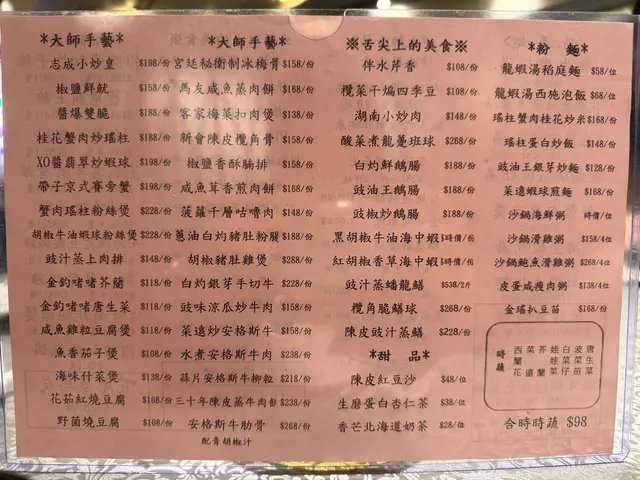 *大師手藝*
志成小炒皇 $198/份
椒鹽鮮魷 $158/份
醬爆雙脆 $188/份
桂花蟹肉炒瑤柱 $188/份
XO醬翡翠炒蝦球 $198/份
帶子京式賽旁蟹 $198/份
蟹肉瑤柱粉絲煲 $228/份
胡椒牛油蝦球粉絲煲 $228/份
豉汁蒸上肉排 $148/份
金釣啫啫芥蘭 $138/份
金釣啫啫唐生菜 $118/份
咸魚雞粒豆腐煲 $118/份
魚香茄子煲 $108/份
海味什菜煲 $138/份
花菇紅燒豆腐 $108/份
野菌燒豆腐 $108/份
*大師手藝*
宮廷秘衛制冰梅骨 $158/份
馬友咸魚蒸肉餅 $168/份
客家梅菜扣肉煲 $138/份
新會陳皮欖角骨 $158/份
椒鹽香酥腩排 $158/份
咸魚茸香煎肉餅 $168/份
菠蘿千層咕嚕肉 $148/份
蔥油白灼豬肚粉腸 $188/份
胡椒豬肚雞煲 $288/份
白灼銀芽手切牛 $228/份
豉味涼瓜炒牛肉 $158/份
菜遠炒安格斯牛 $158/份
水煮安格斯牛肉 $238/份
蒜片安格斯牛柳粒 $218/份
三十年陳皮蒸牛肉餅 $238/份
安格斯牛肋骨 $268/份
配青胡椒汁
※舌尖上的美食※
伴水芹香 $108/份
欖菜干煸四季豆 $108/份
湖南小炒肉 $148/份
酸菜煮龍躉班球 $268/份
白灼鮮鵝腸 $188/份
豉油王鵝腸 $188/份
豉椒炒鵝腸 $188/份
黑胡椒牛油海中蝦 $時價/份
紅胡椒香草海中蝦 $時價/份
豉汁蒸蟠龍鱔 $538/2斤
欖角脆鱔球 $268/份
陳皮豉汁蒸鱔 $228/份
*甜 品*
陳皮紅豆沙 $48/位
生磨蛋白杏仁茶 $38/位
香芒北海道奶茶 $28/位
*粉 麵*
龍蝦湯稻庭麵 $58/位
龍蝦湯西施泡飯 $68/位
瑤柱蟹肉桂花炒米 $168/份
瑤柱蛋白炒飯 $148/份
豉油王銀芽炒麵 $128/份
菜遠蝦球煎麵 $168/份
沙鍋海鮮粥 時價/位
沙鍋滑雞粥 $158/4位
沙鍋鮑魚滑雞粥 $268/4位
皮蛋咸瘦肉粥 $138/4位
金瑤扒豆苗 $168/份
時蔬
西蘭花
菜遠
芥蘭
娃娃菜
白菜仔
波菜苗
唐生菜
合時時蔬 $98